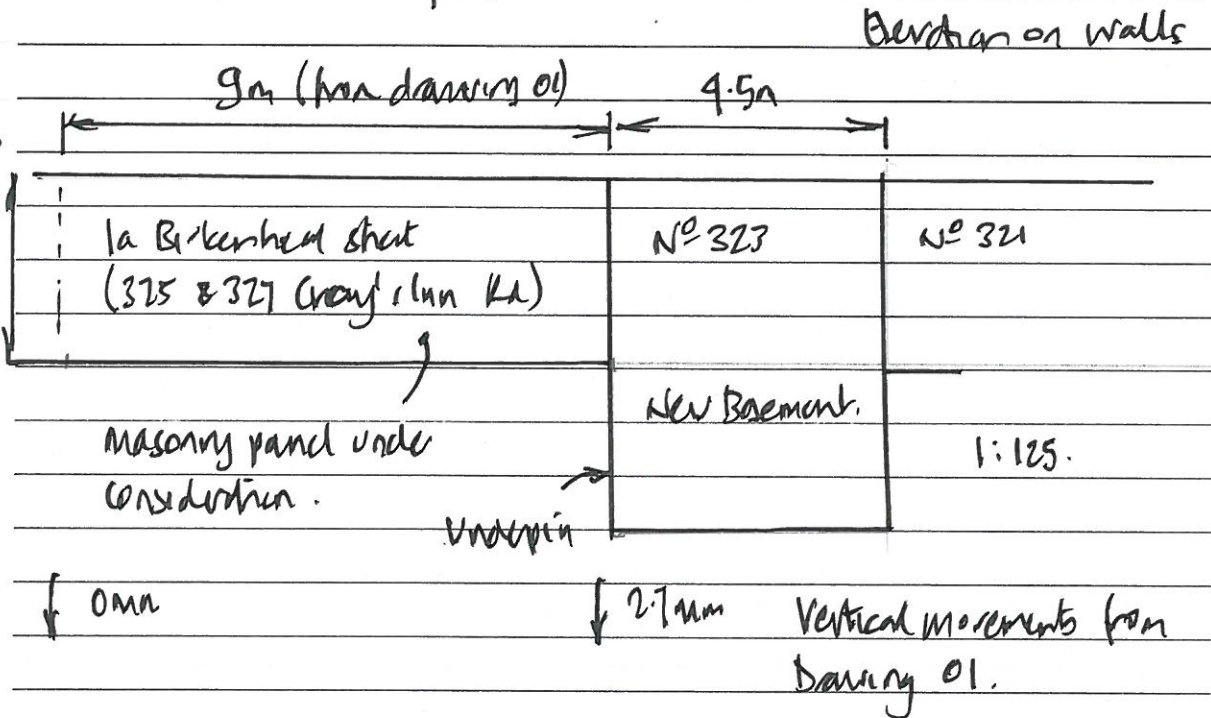 Elevation on walls
9m (from drawing 01)
4.5m
1a Birkenhead street
(325 & 327 Gray's Inn Rd)
Nº 323
Nº 321
New Basement.
masonry panel under
consideration.
1:125.
Underpin
0mm
2.7mm
Vertical movements from
Drawing 01.